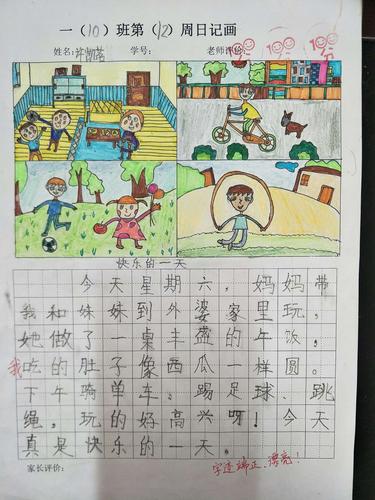 一（10）班第（12）周日记画
姓名：许
学号：
老师评价：
100分 100分 100分
快乐的一天
今天星期六，妈妈带
我和妹妹到外婆家里玩，
她做了一桌丰盛的午饭，
我吃的肚子像西瓜一样圆。
下午骑单车，踢足球、跳
绳，玩的好高兴呀！今天
真是快乐的一天。
家长评价：
字迹端正、漂亮！